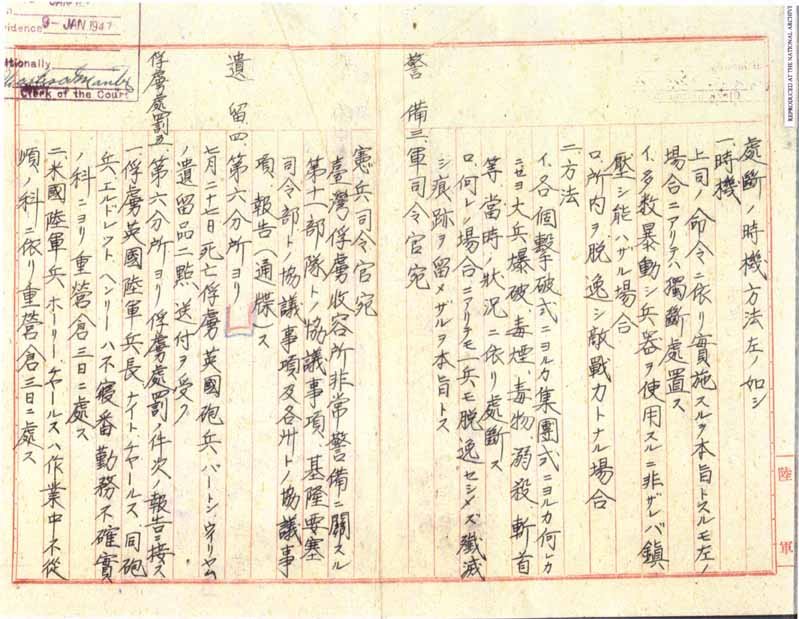 處斷ノ時機方法左ノ如シ
一、時機
上司ノ命令ニ依リ實施スルヲ本旨トスルモ左ノ
場合ニアリテハ獨斷處置ス
イ、多数暴動シ兵器ヲ使用スルニ非ザレバ鎮
壓シ能ハザル場合
ロ、所内ヲ脱逸シ敵戰力トナル場合
二、方法
イ、各個撃破式ニヨルカ集團式ニヨルカ何レカ
ニセヨ大兵爆破、毒煙、毒物、溺殺、斬首
等當時ノ狀況ニ依リ處斷ス
ロ、何レノ場合ニアリテモ一兵モ脱逸セシメズ殲滅
シ痕跡ヲ留メザルヲ本旨トス
警備 三、軍司令官宛
憲兵司令官宛
臺灣俘虜收容所非常警備ニ關スル
第十一部隊トノ協議事項、基隆要塞
司令部トノ協議事項及各州トノ協議事
項報告(通牒)ス
遺留 四、第六分所ヨリ
七月二十七日死亡俘虜英國砲兵バートン、ウイリヤム
ノ遺留品二點送付ヲ受ク
俘虜處罰 五、第六分所ヨリ俘虜處罰ノ件次ノ報告ニ接ス
一、俘虜英國陸軍兵長ナイトチャールス、同砲
兵エルドレット ヘンリーハ不寢番勤務不確實
ノ科ニヨリ重營倉三日ニ處ス
二、米國陸軍兵ホーリー、チャールスハ作業中不從
順ノ科ニ依リ重營倉三日ニ處ス
陸軍
9-JAN 1947
Clerk of the Court
REPRODUCED AT THE NATIONAL ARCHIVES